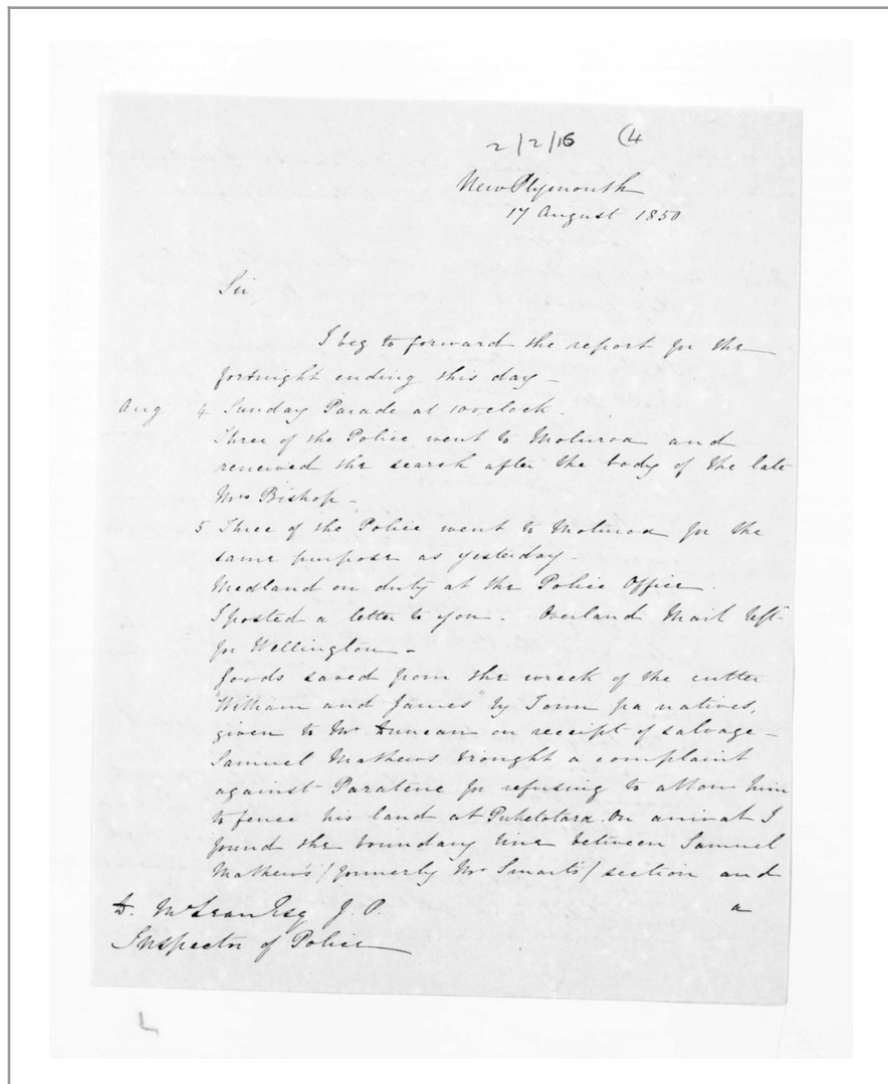 2/2/16 (4
New Plymouth
17 August 1850
Sir
I beg to forward the report for the
fortnight ending this day -
Aug 4. Sunday Parade at 10 oclock -
Three of the Police went to Moturoa and
renewed the search after the body of the late
Mrs Bishop -
5. Three of the Police went to Moturoa for the
same purpose as yesterday -
Medland on duty at the Police Office.
I posted a letter to you. Overland Mail left
for Wellington -
Goods saved from the wreck of the cutter
"William and James" by Town pa natives,
given to Mr Duncan on receipt of salvage -
Samuel Mathews brought a complaint
against Paratene for refusing to allow him
to fence his land at Pukelotara. On arrival I
found the boundary line between Samuel
Mathews' / formerly Mr Smarts / section and
a
D. McLean Esq J. P.
Inspector of Police